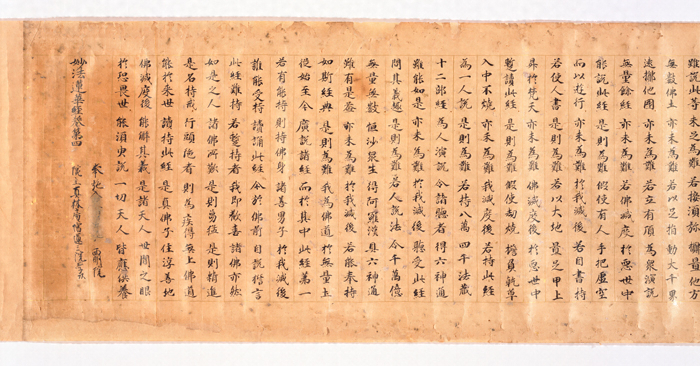 雖說此等 未為難 若接須弥 擲置他方
無數佛土 亦未為難 若以足指 動大千界
遠擲他國 亦未為難 若立有頂 為衆演說
無量餘經 亦未為難 若佛滅後 於惡世中
能說此經 是則為難 假使有人 手把虛空
而以遊行 亦未為難 於我滅後 若自書持
若使人書 是則為難 若以大地 置足甲上
昇於梵天 亦未為難 佛滅度後 於惡世中
暫讀此經 是則為難 假使劫燒 擔負乾草
入中不燒 亦未為難 我滅度後 若持此經
為一人說 是則為難 若持八万 四千法藏
十二部經 為人演說 令諸聽者 得六神通
雖能如是 亦未為難 於我滅後 聽受此經
問其義趣 是則為難 若人說法 令千萬億
無量無數 恒沙衆生 得阿羅漢 具六神通
雖有是益 亦未為難 於我滅後 若能奉持
如斯經典 是則為難 我為佛道 於無量土
從始至今 廣說諸經 而於其中 此經第一
若有能持 則持佛身 諸善男子 於我滅後
誰能受持 讀誦此經 今於佛前 自說誓言
此經難持 若暫持者 我即歡喜 諸佛亦然
如是之人 諸佛所歎 是則勇猛 是則精進
是名持戒 行頭陀者 則為疾得 無上佛道
能於來世 讀持此經 是真佛子 住淳善地
佛滅度後 能解其義 是諸天人 世間之眼
於恐畏世 能須臾說 一切天人 皆應供養
妙法蓮華經卷第四